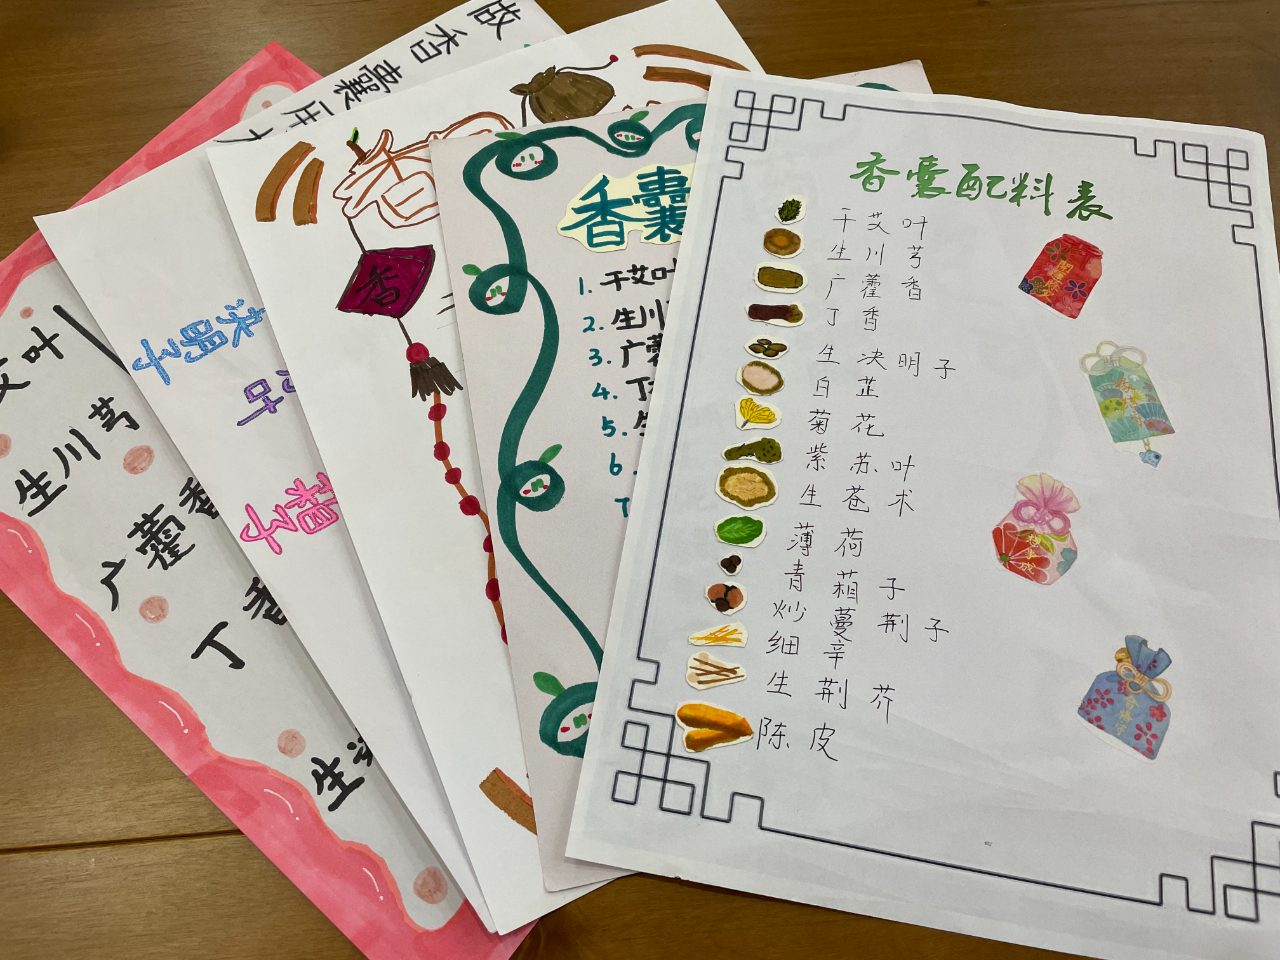 艾叶
生川芎
广藿香
丁香
生
做香囊
决明子
叶
箱子
香
香
香囊
1. 干艾叶
2. 生川
3. 广藿
4. 丁
5. 生
6.
香囊配料表
干艾叶
生川芎
广藿香
丁香
生决明子
白芷
菊花
紫苏叶
生苍术
薄荷
青葙子
炒蔓荆子
细辛
生荆芥
陈皮